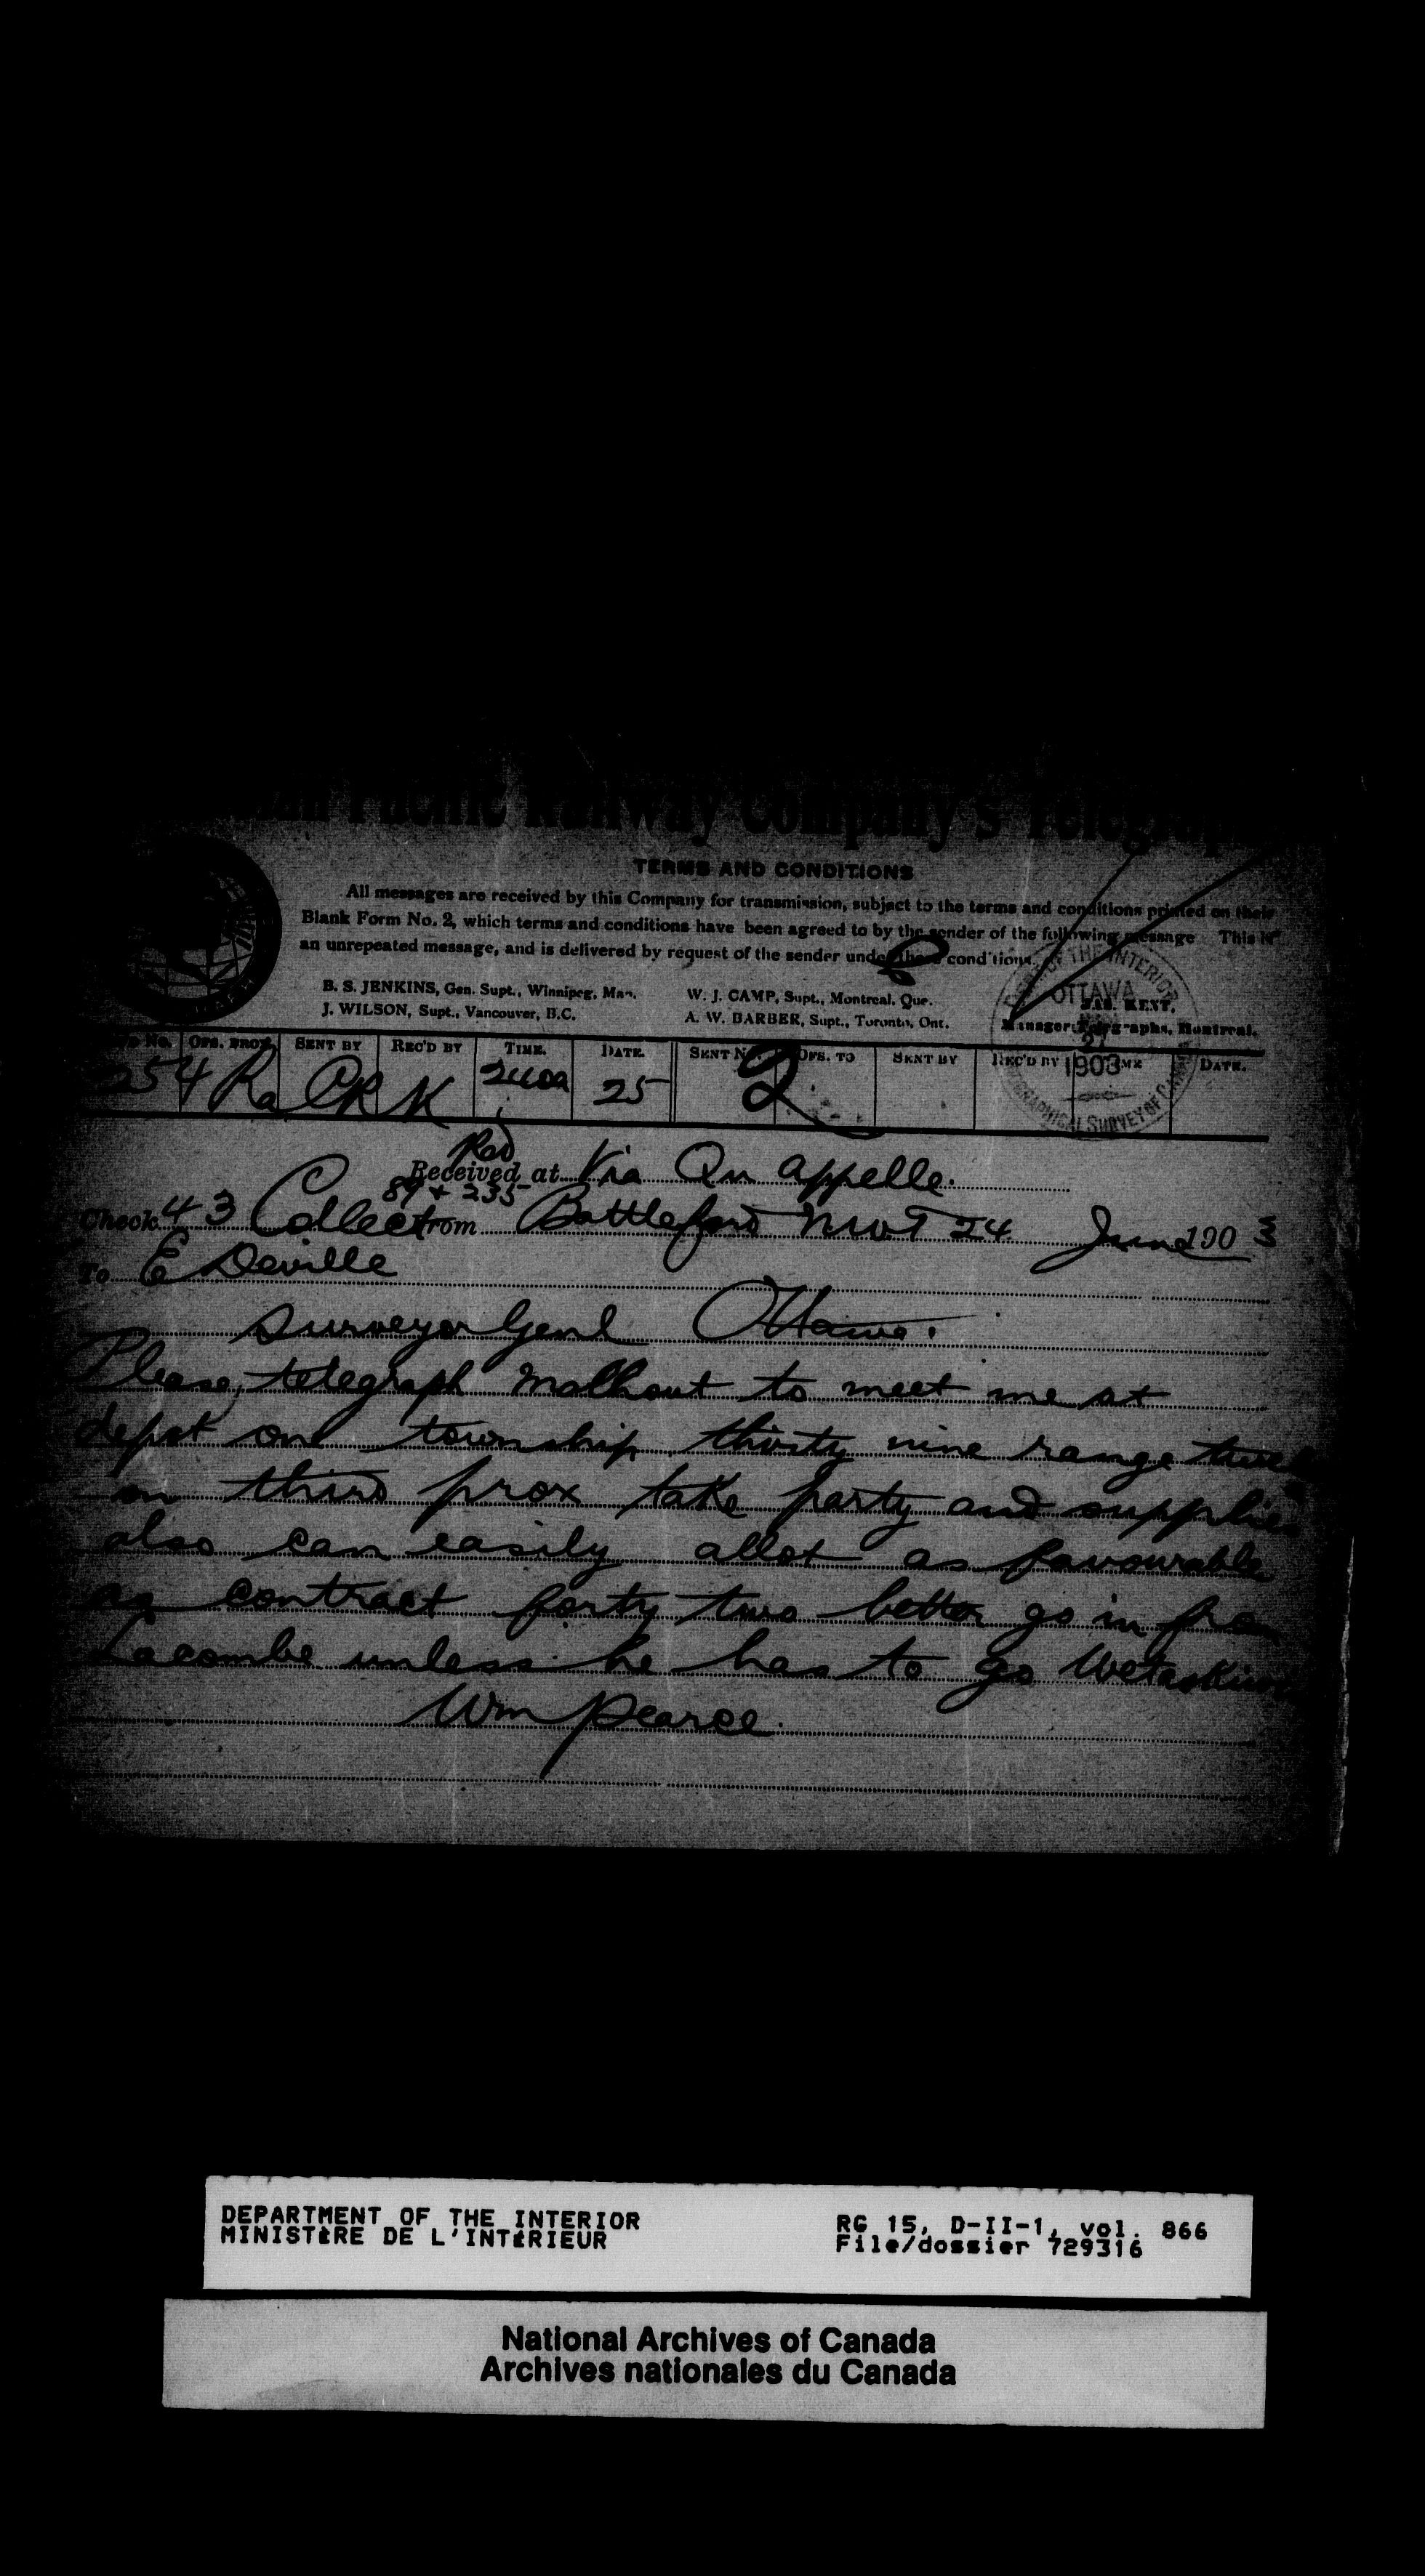 Pacific Railway Company's Telegraph
TERMS AND CONDITIONS
All messages are received by this Company for transmission, subject to the terms and conditions printed on their
Blank Form No. 2, which terms and conditions have been agreed to by the sender of the following message This is
an unrepeated message, and is delivered by request of the sender under these conditions.
B. S. JENKINS, Gen. Supt., Winnipeg, Man. W. J. CAMP, Supt., Montreal, Que. JAS. KENT,
J. WILSON, Supt., Vancouver, B.C. A. W. BARBER, Supt., Toronto, Ont. Manager Telegraphs, Montreal.
OF THE INTERIOR
OTTAWA
1903
SURVEY OF
No. OFS. FROM SENT BY REC'D BY TIME. DATE. SENT No. OFS. TO SENT BY REC'D BY TIME DATE.
254 Ra CR K 25 2
Received at Via Qu appelle.
89 + 235
Check 43 Collect from Battleford NWT 24 June 1903
To E Deville
Surveyor Genl Ottawa.
Please telegraph Malhout to meet me at
depot on township thirty nine range
on third prox take party and supplies
also can easily allot as favourable
as contract forty two better go in from
Lacombe unless he has to go Wetaskiwin
Wm Pearce.
DEPARTMENT OF THE INTERIOR RG 15, D-II-1, vol. 866
MINISTÈRE DE L'INTÉRIEUR File/dossier 729316
National Archives of Canada
Archives nationales du Canada